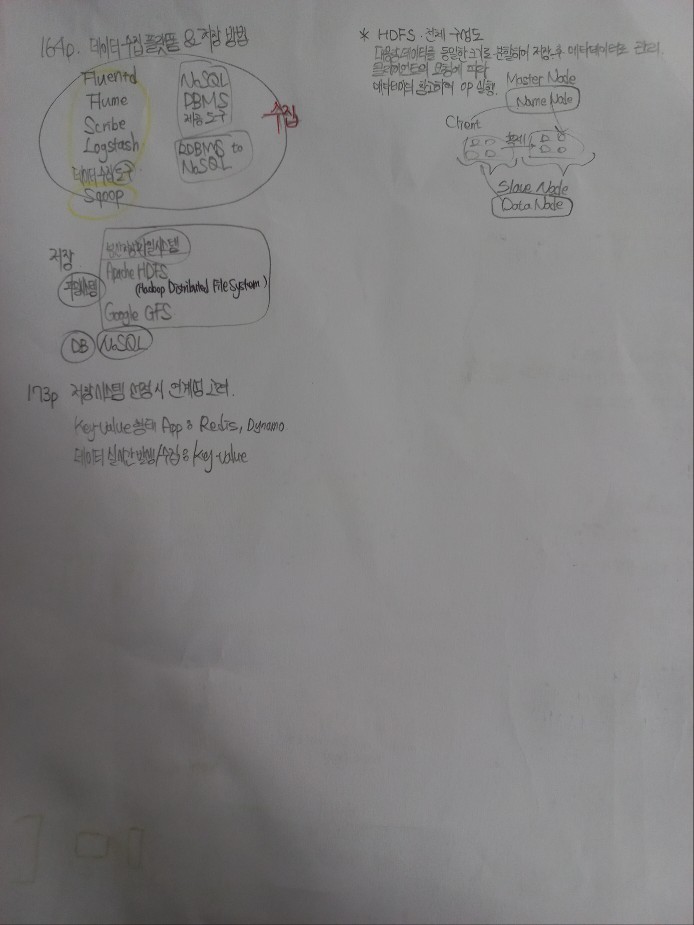 164p. 데이터 수집 플랫폼 & 저장 방법
Fluentd
Flume
Scribe
Logstash
데이터 수집 도구
Sqoop
NoSQL
DBMS
제공 도구
RDBMS to
NoSQL
수집
저장
파일시스템
분산저장파일시스템
Apache HDFS
(Hadoop Distributed File System)
Google GFS
DB NoSQL
173p 저장시스템 선정 시 연계성 고려.
Key-value 형태 App & Redis, Dynamo
데이터 실시간 발생/수집 & Key-value
* HDFS 전체 구성도
대용량 데이터를 동일한 크기로 분할하여 저장 후 메타데이터로 관리.
클라이언트의 요청에 따라
메타데이터 참고하여 OP 실행.
Master Node
Name Node
Client
복제
Slave Node
Data Node